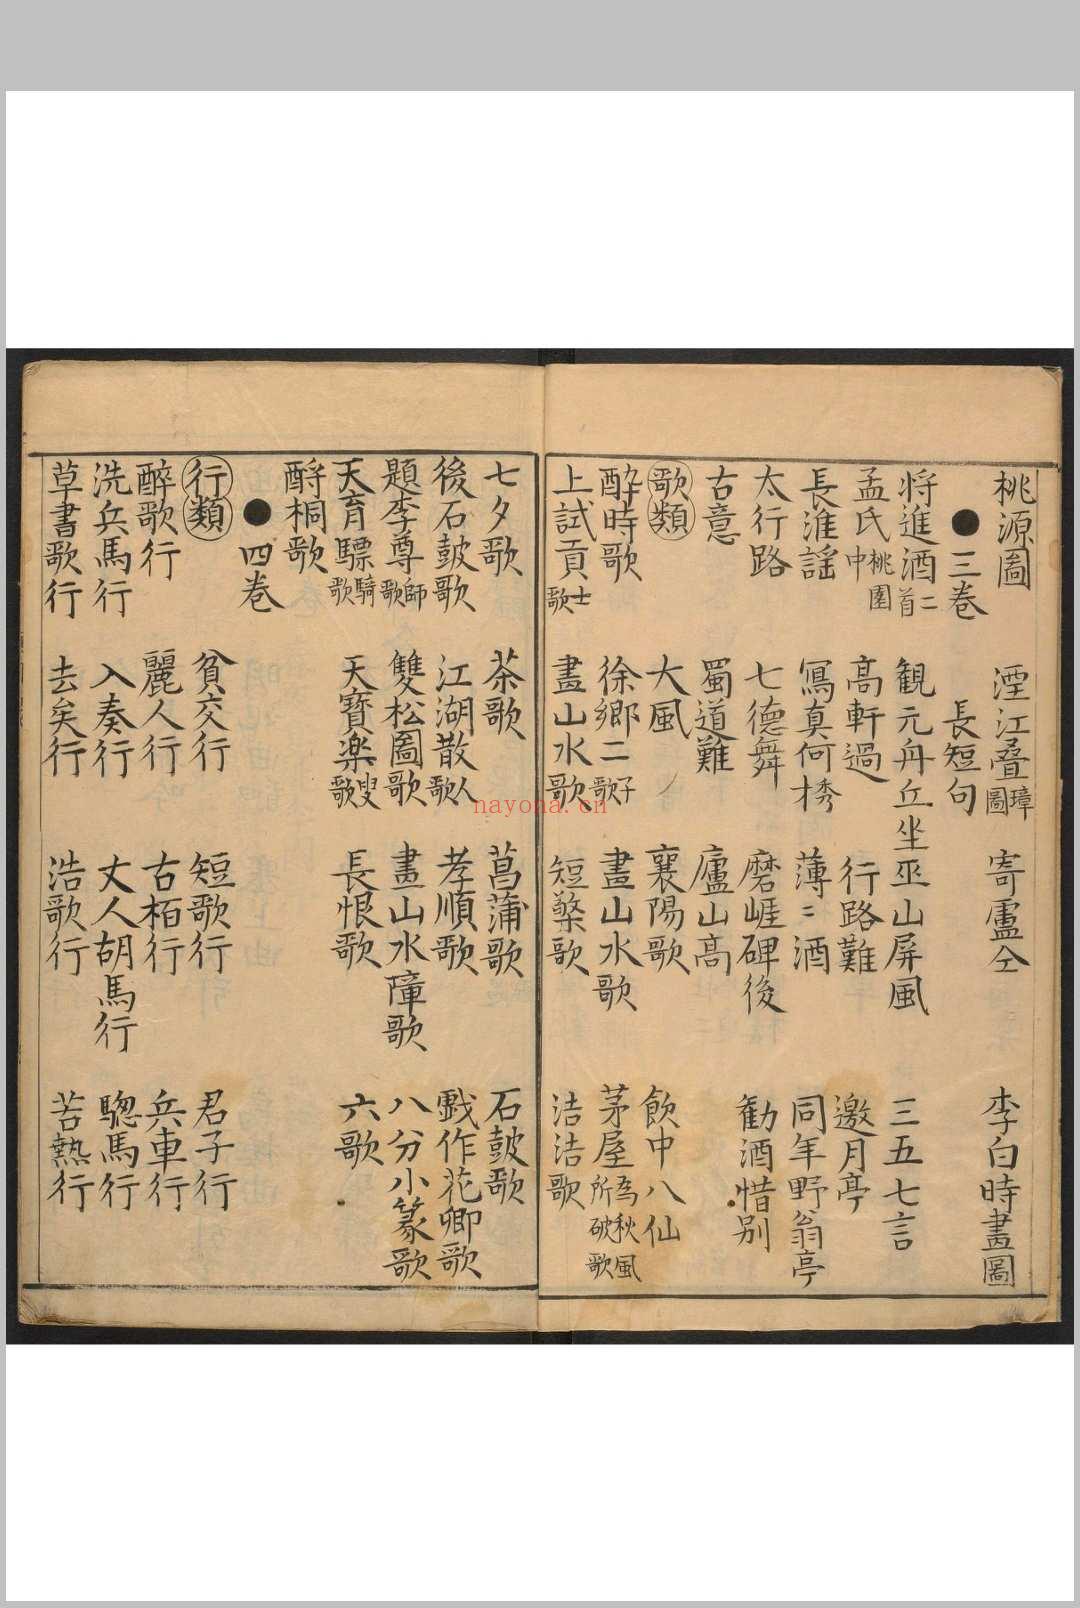 桃源圖　湮江疊嶂圖　寄盧仝　李白時畫圖
●三卷　長短句
将進酒二首　観元丹丘坐巫山屏風　三五七言
孟氏桃園中　高軒過　行路難　邀月亭
長淮謡　寫真何秀才　薄〻酒　同年野翁亭
太行路　七德舞　磨崖碑後　勧酒惜别
古意　蜀道難　廬山高
歌類　大風　襄陽歌　飲中八仙
酔時歌　徐卿二子歌　畫山水歌　茅屋為秋風所破歌
上試貢士歌　畫山水歌　短檠歌　浩浩歌
七夕歌　茶歌　菖蒲歌　石鼓歌
後石鼓歌　江湖散人歌　孝順歌　戲作花卿歌
題李尊師歌　雙松圖歌　畫山水障歌　八分小篆歌
天育驃騎歌　天寶楽叟歌　長恨歌　六歌
酹桐歌
●四卷
行類　貧交行　短歌行　君子行
醉歌行　麗人行　古栢行　兵車行
洗兵馬行　入奏行　丈人胡馬行　驄馬行
草書歌行　去矣行　浩歌行　苦熱行
nayona.cn